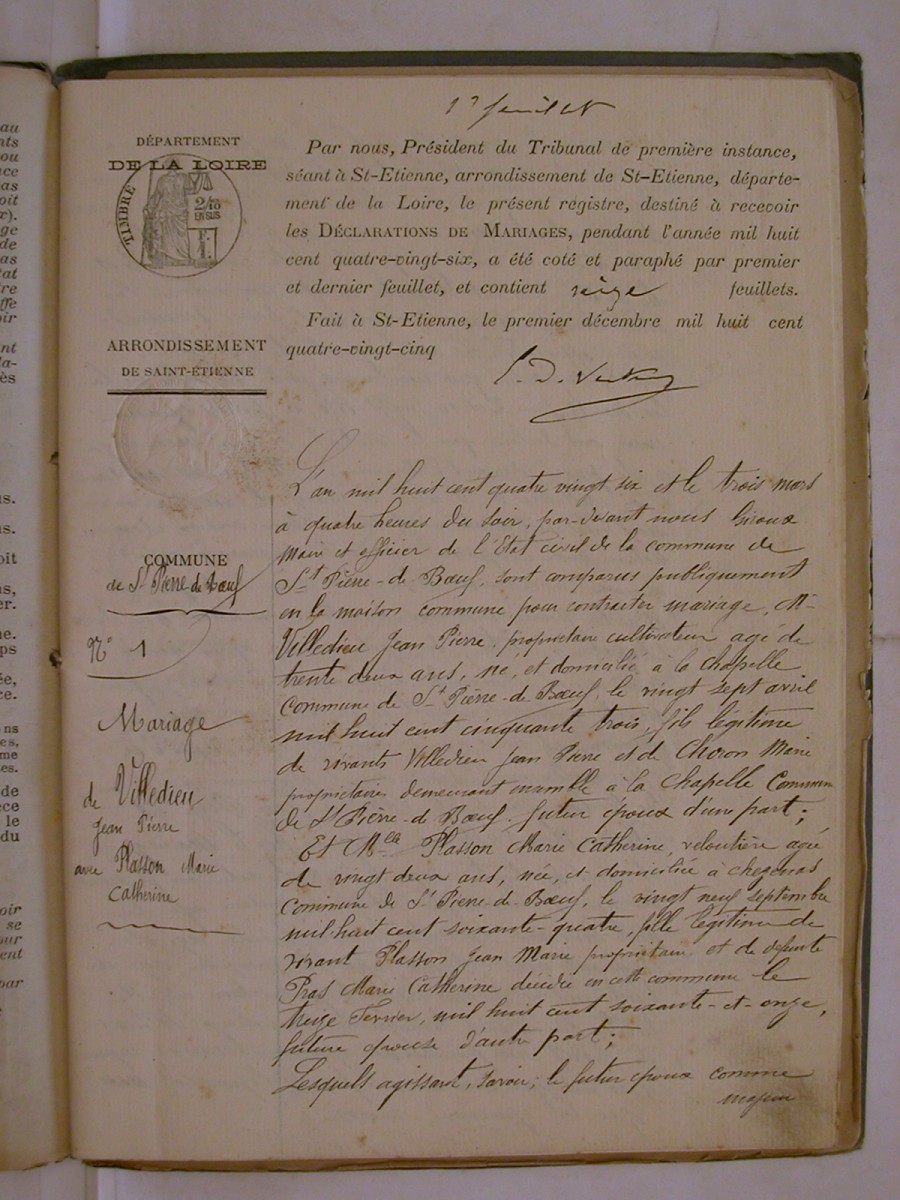 1er feuillet
DÉPARTEMENT
DE LA LOIRE
TIMBRE
2/10
EN SUS
Par nous, Président du Tribunal de première instance,
séant à St-Etienne, arrondissement de St-Etienne, départe-
ment de la Loire, le présent régistre, destiné à recevoir
les DÉCLARATIONS DE MARIAGES, pendant l'année mil huit
cent quatre-vingt-six, a été coté et paraphé par premier
et dernier feuillet, et contient seize feuillets.
Fait à St-Etienne, le premier décembre mil huit cent
quatre-vingt-cinq
ARRONDISSEMENT
DE SAINT-ÉTIENNE
COMMUNE
de St Pierre de Bœuf
No 1
Mariage
de Villedieu
Jean Pierre
avec Plasson Marie
Catherine
L'an mil huit cent quatre vingt six et le trois mars
à quatre heures du soir, par-devant nous
Maire et officier de l'Etat civil de la commune de
St Pierre-de-Bœuf, sont comparus publiquement
en la maison commune pour contracter mariage, Mr
Villedieu Jean Pierre, propriétaire cultivateur, agé de
trente deux ans, né, et domicilié à la chapelle
commune de St Pierre-de-Bœuf, le vingt sept avril
mil huit cent cinquante trois, fils légitime
de vivants Villedieu Jean Pierre et de Choron Marie
propriétaires demeurant ensemble à la Chapelle Commune
de St Pierre-de-Bœuf, futur époux d'une part;
Et Mlle Plasson Marie Catherine, veloutière agée
de vingt deux ans, née, et domiciliée à chezenas
commune de St Pierre-de-Bœuf, le vingt neuf septembre
mil-huit cent soixante-quatre, fille légitime de
vivant Plasson Jean Marie propriétaire et de défunte
Pras Marie Catherine décédée en cette commune le
treize Février, mil huit cent soixante-et-onze,
future épouse d'autre part;
Lesquels agissant, savoir; le futur époux comme
majeur